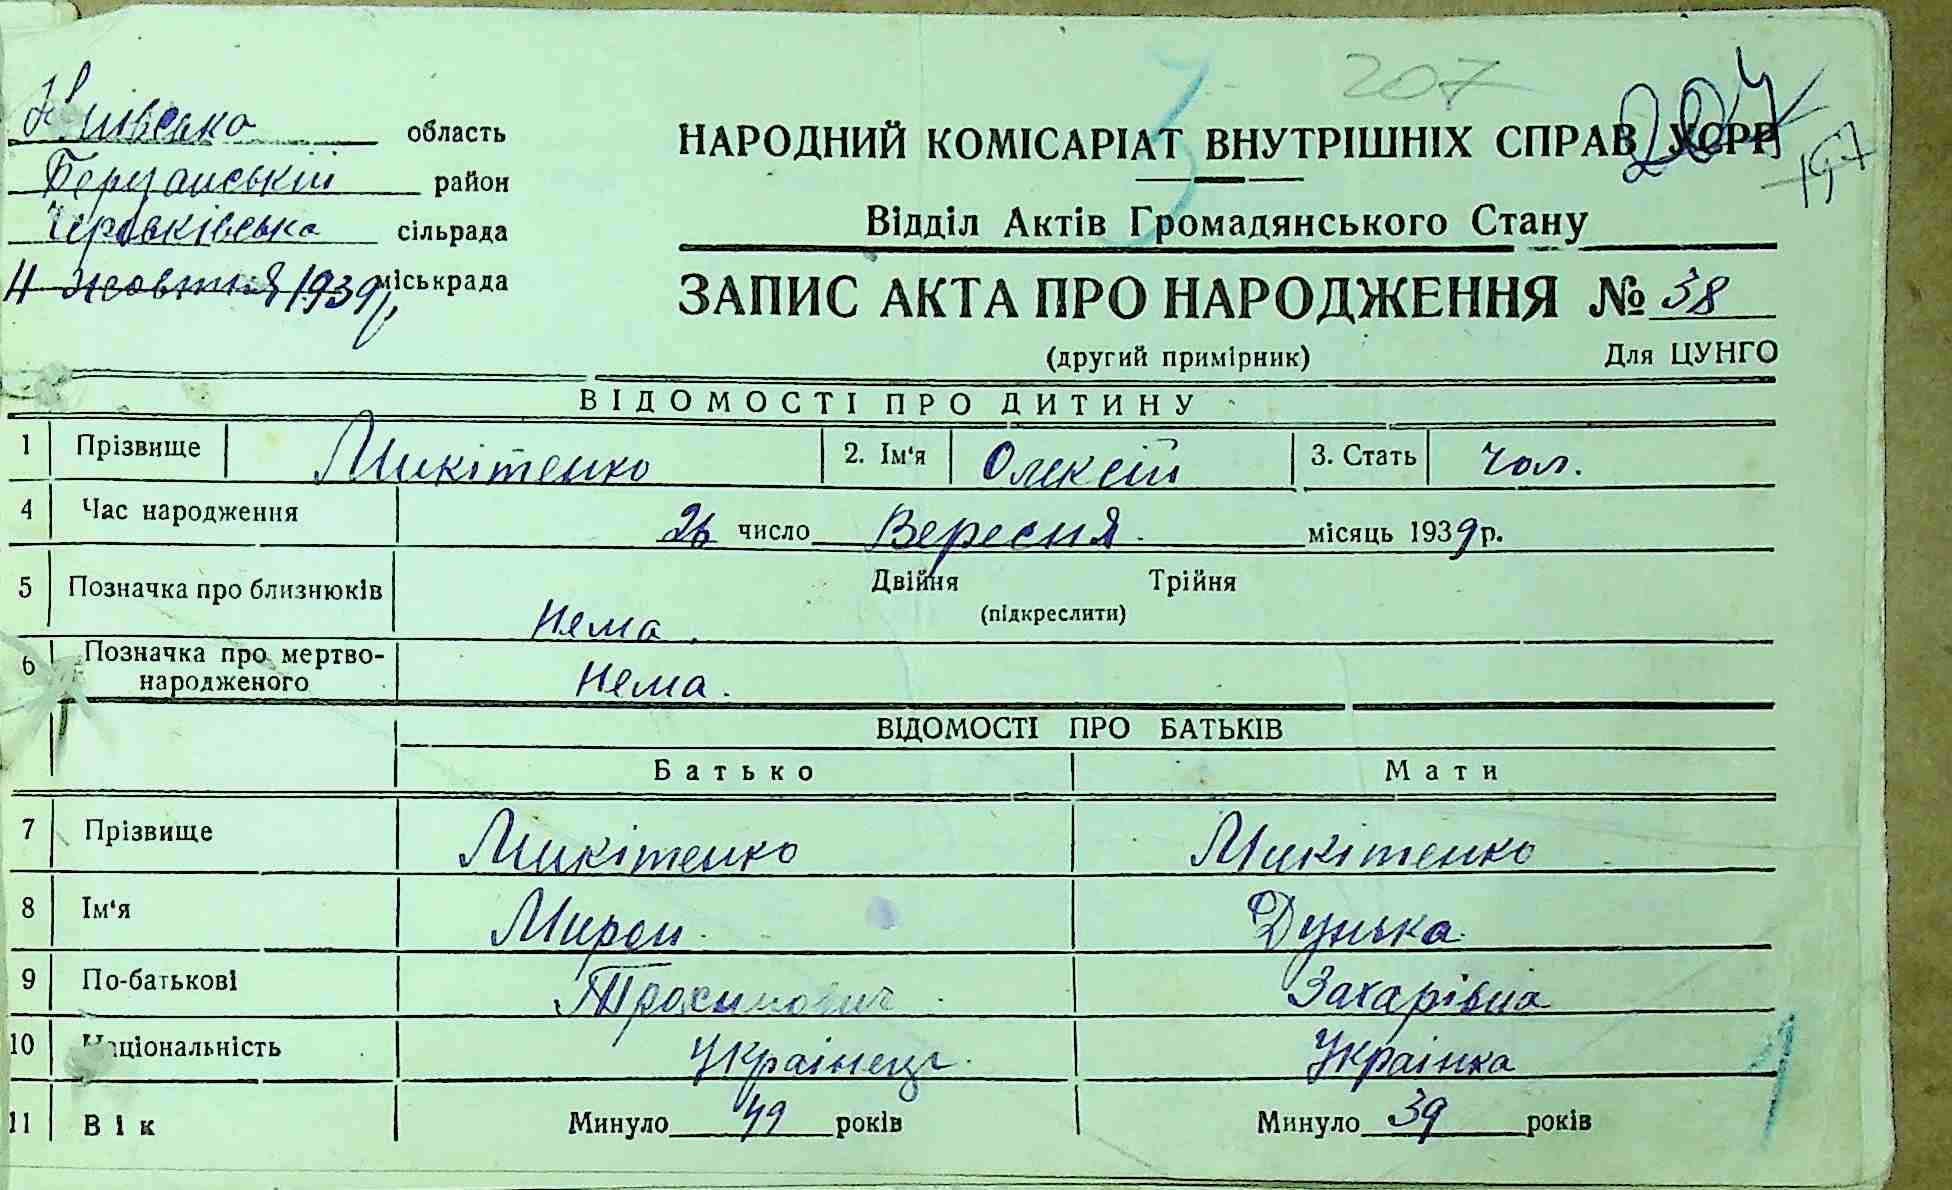 Київська область
Березанській район
Черваківська сільрада
4 жовтня 1939 р. міськрада
207
207
197
НАРОДНИЙ КОМІСАРІАТ ВНУТРІШНІХ СПРАВ УСРР
Відділ Актів Громадянського Стану
ЗАПИС АКТА ПРО НАРОДЖЕННЯ № 38
(другий примірник) Для ЦУНГО
ВІДОМОСТІ ПРО ДИТИНУ
1 Прізвище Микітенко 2. Ім'я Олексій 3. Стать чол.
4 Час народження 26 число Вересня місяць 1939 р.
5 Позначка про близнюків Двійня Трійня
(підкреслити)
Нема.
6 Позначка про мертво-
народженого Нема.
ВІДОМОСТІ ПРО БАТЬКІВ
Батько Мати
7 Прізвище Микітенко Микітенко
8 Ім'я Мирон Дунька
9 По-батькові Трохимович Захарівна
10 Національність Українець Українка
11 Вік Минуло 49 років Минуло 39 років